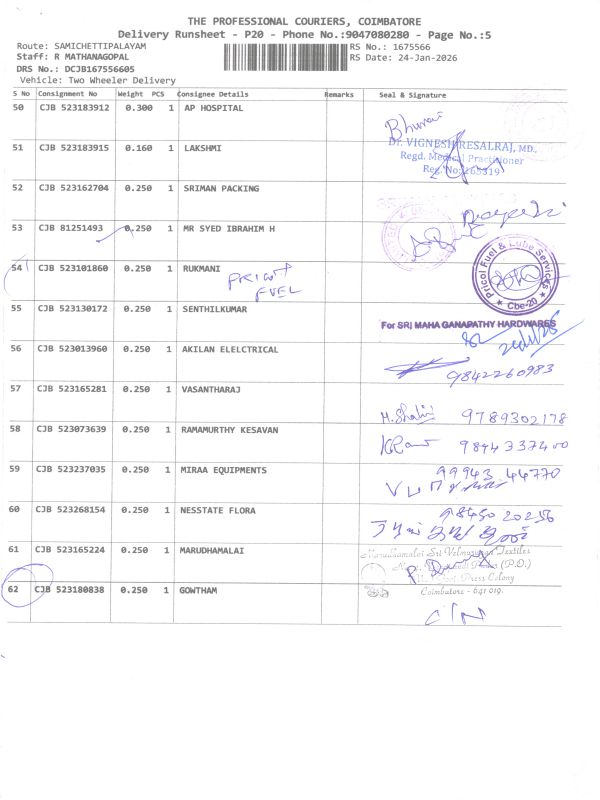 THE PROFESSIONAL COURIERS, COIMBATORE
Delivery Runsheet - P20 - Phone No.:9047080280 - Page No.:5
Route: SAMICHETTIPALAYAM
RS No.: 1675566
Staff: R MATHANAGOPAL
RS Date: 24-Jan-2026
DRS No.: DCJB167556605
Vehicle: Two Wheeler Delivery
S No Consignment No Weight PCS Consignee Details Remarks Seal & Signature
50 CJB 523183912 0.300 1 AP HOSPITAL
Dr. VIGNESH RESALRAJ, MD.,
51 CJB 523183915 0.160 1 LAKSHMI
Regd. Medical Practitioner
Reg. No: 265319
52 CJB 523162704 0.250 1 SRIMAN PACKING
53 CJB 81251493 0.250 1 MR SYED IBRAHIM H
Pricol Fuel & Lube Services
Cbe-20
54 CJB 523101860 0.250 1 RUKMANI
FUEL
55 CJB 523130172 0.250 1 SENTHILKUMAR
For SRI MAHA GANAPATHY HARDWARES
56 CJB 523013960 0.250 1 AKILAN ELELCTRICAL
9842260983
57 CJB 523165281 0.250 1 VASANTHARAJ
M. Shalini 9789302178
58 CJB 523073639 0.250 1 RAMAMURTHY KESAVAN
9894337400
59 CJB 523237035 0.250 1 MIRAA EQUIPMENTS
99943 44770
60 CJB 523268154 0.250 1 NESSTATE FLORA
61 CJB 523165224 0.250 1 MARUDHAMALAI
Marudhamalai Sri Velmurugan Textiles
Press Colony
62 CJB 523180838 0.250 1 GOWTHAM
Coimbatore - 641 019.